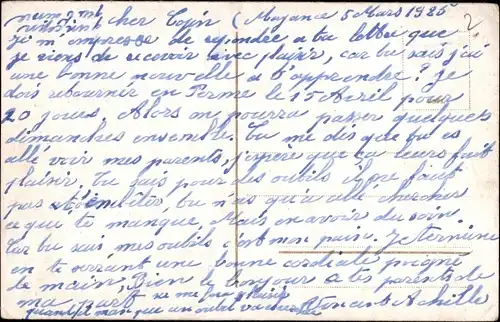 cher Copin (Mayance 5 Mars 1925
je m'empresse de repondre a ta lettre que
je viens de recevoir avec plaisir, car tu sais j'ai
une bonne nouvelle a t'apprendre? Je
dois retourner en Perme le 15 Avril pour
20 jours, Alors on pourra passer quelques
dimanches ensemble. Tu me dis que tu es
allé voir mes parents, j'espère que ça leurs fait
plaisir. Tu sais pour des outils il ne faut
pas tu n'as qu'a allé chercher
ce que te manque, Mais en avoir du soin.
Car tu sais mes outils c'est mon pain. Je termine
en te serrant une bonne cordiale poigné
de main, Bien le bonjour a tes parents de
ma part
quand il manque un outil Vincent Achille
2